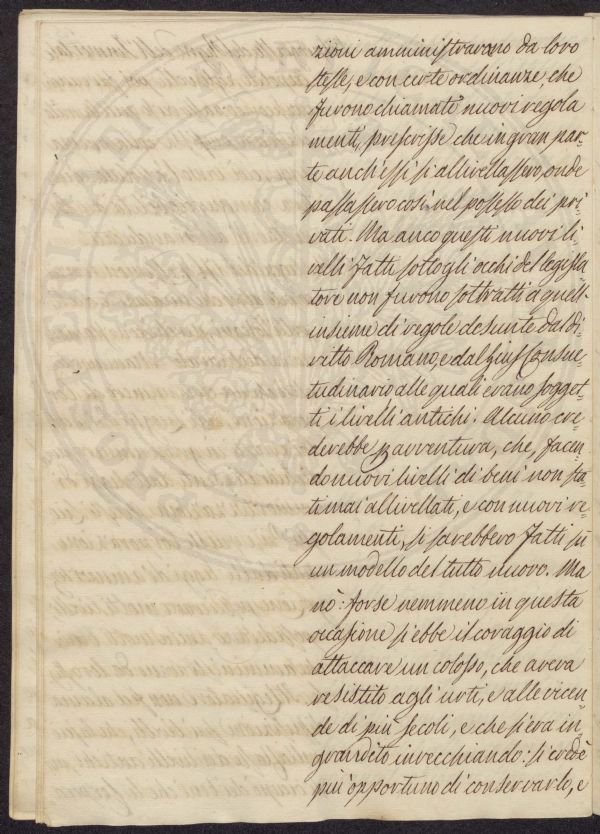 zioni amministravano da loro
stesse, e con certe ordinanze, che
furono chiamate nuovi regola
menti, prescrisse che in gran par-
te anch'essi si allivellassero, onde
passassero così nel possesso dei pri-
vati. Ma anco questi nuovi li-
velli fatti sotto gli occhi del legisla-
tore non furono sottratti a quell'
insieme di regole desunte dal di-
ritto Romano, e dal Jius Consue-
tudinario alle quali erano sogget-
ti i livelli antichi. Alcuno cre-
derebbe p. avventura, che, facen-
do nuovi livelli di beni non sta-
ti mai allivellati, e con nuovi re-
golamenti, si sarebbero fatti sù
un modello del tutto nuovo. Ma
nò: forse nemmeno in questa
occasione si ebbe il coraggio di
attaccare un colosso, che aveva
resistito agli urti, e alle vicen-
de di più secoli, e che si era in-
grandito invecchiando: si credè
più opportuno di conservarlo, e